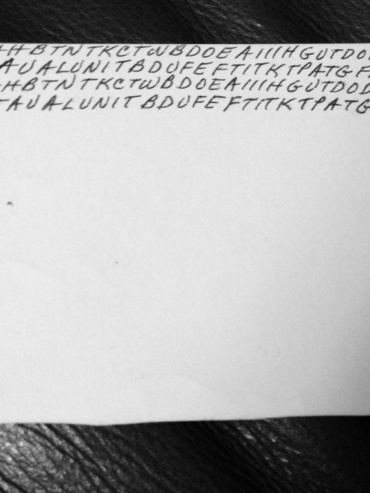 HBTNTKCTWBDOEAIIIHGUTDO
AUALUNITBDUFEFTITKTPATGF
HBTNTKCTWBDOEAIIIHGUTDOD
TAUALUNITBDUFEFTITKTPATG